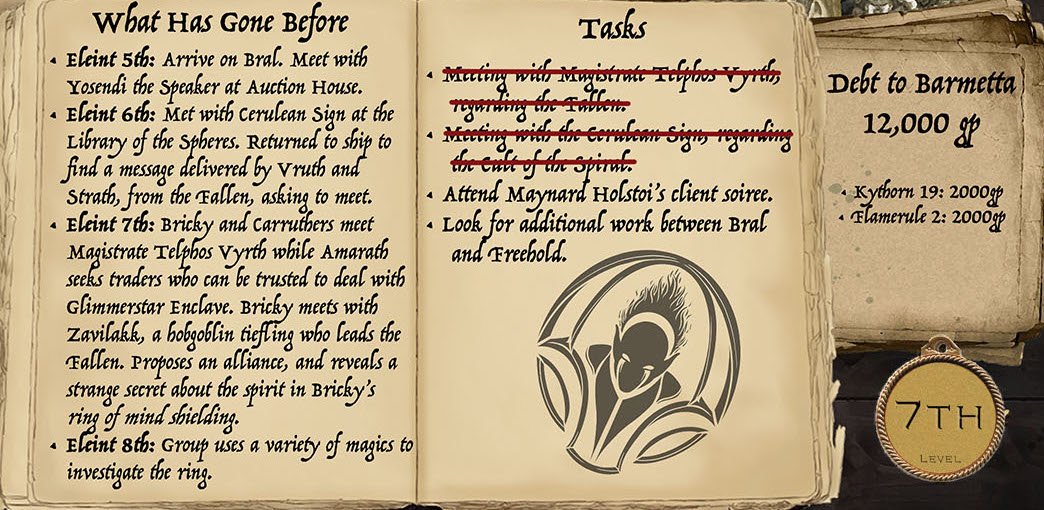 What Has Gone Before
Eleint 5th: Arrive on Bral. Meet with
Yosendi the Speaker at Auction House.
Eleint 6th: Met with Cerulean Sign at the
Library of the Spheres. Returned to ship to
find a message delivered by Vruth and
Strath, from the Fallen, asking to meet.
Eleint 7th: Bricky and Carruthers meet
Magistrate Telphos Vyrth while Amarath
seeks traders who can be trusted to deal with
Glimmerstar Enclave. Bricky meets with
Zavilakk, a hobgoblin tiefling who leads the
Fallen. Proposes an alliance, and reveals a
strange secret about the spirit in Bricky's
ring of mind shielding.
Eleint 8th: Group uses a variety of magics to
investigate the ring.
Tasks
Meeting with Magistrate Telphos Vyrth,
regarding the Fallen.
Meeting with the Cerulean Sign, regarding
the Cult of the Spiral.
Attend Maynard Holstoi's client soiree.
Look for additional work between Bral
and Freehold.
Debt to Barmetta
12,000 gp
Kythorn 19: 2000gp
Flamerule 2: 2000gp
7TH
LEVEL